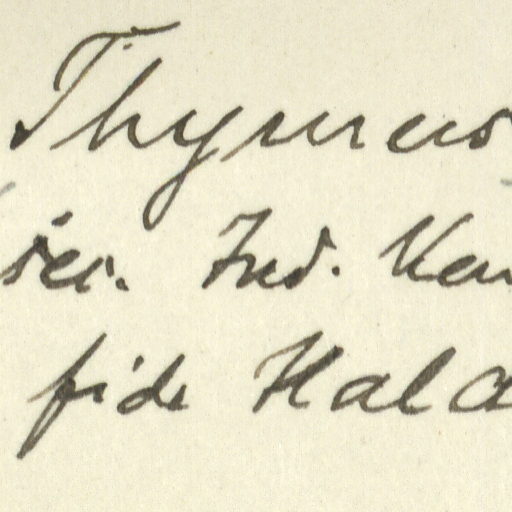 Thymus
sec. Ind. Kew
fide Hala